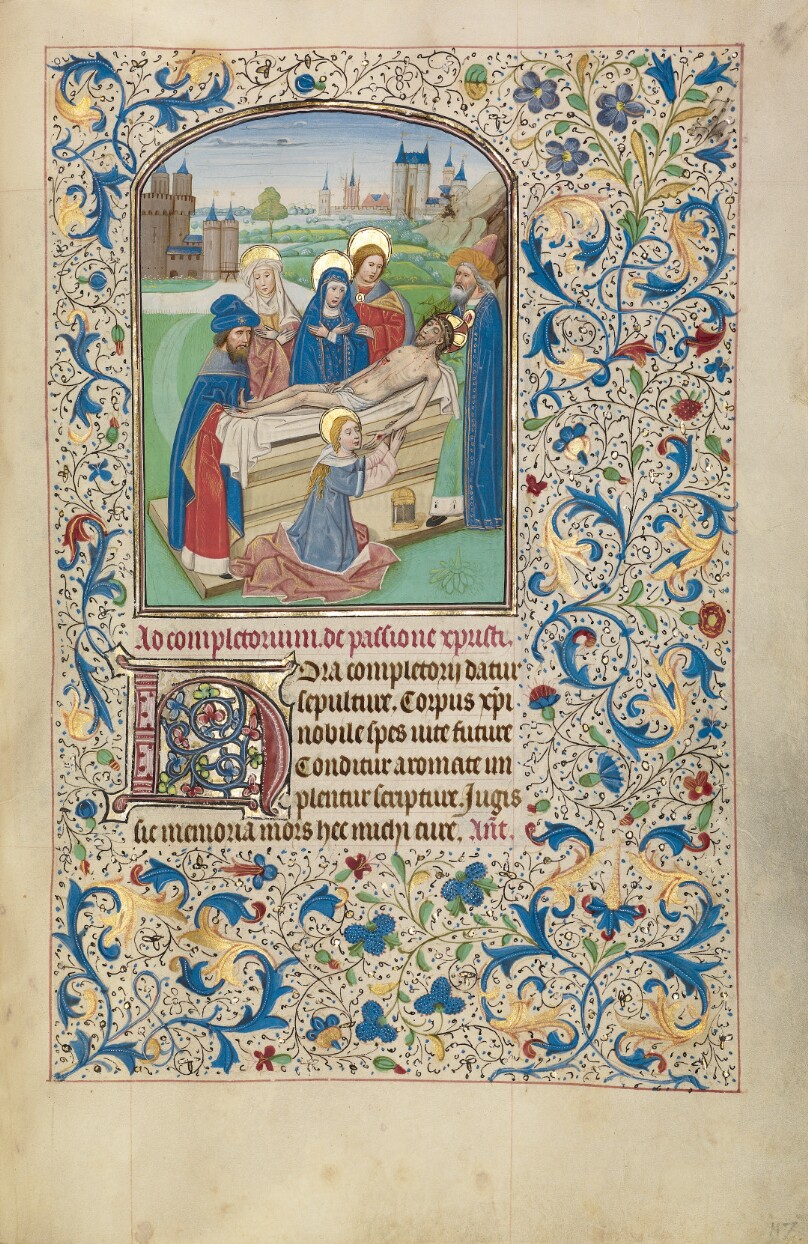 Ad completorium. de passione xpristi.
Hora completorij datur
sepulture. Corpus xpi
nobile spes uite future
Conditur aromate im
plentur scripture. Jugis
sic memoria mors hec michi cure. Ant.
47